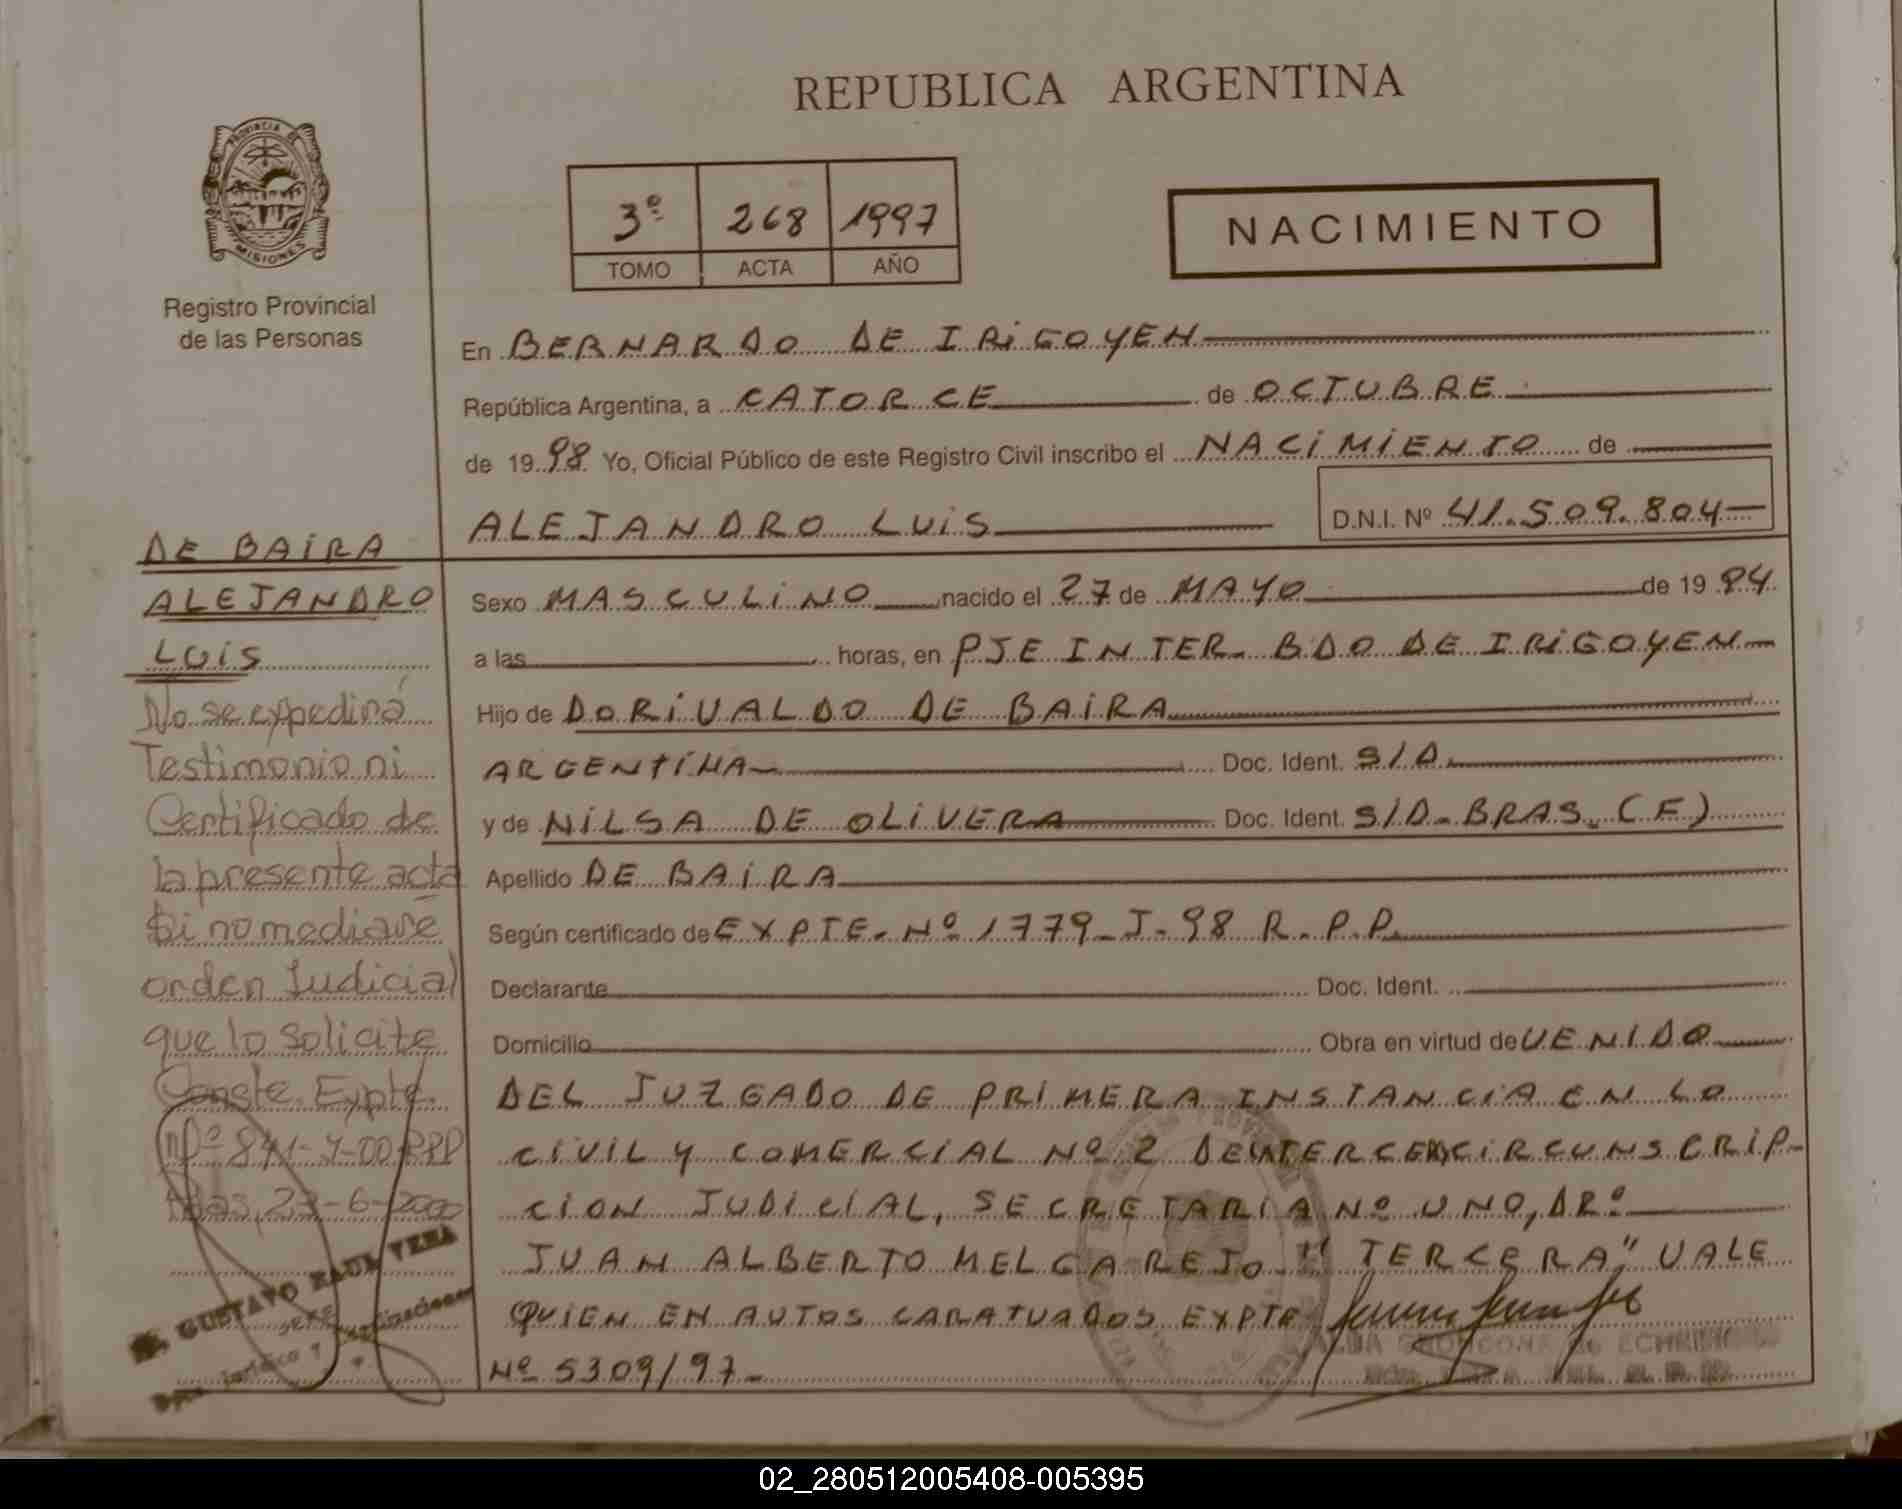 REPUBLICA ARGENTINA
PROVINCIA DE
MISIONES
Registro Provincial
de las Personas
3º 268 1997
TOMO ACTA AÑO
NACIMIENTO
En BERNARDO DE IRIGOYEN
República Argentina, a CATORCE de OCTUBRE
de 1998 Yo, Oficial Público de este Registro Civil inscribo el NACIMIENTO de
ALEJANDRO LUIS D.N.I. Nº 41.509.804
Sexo MASCULINO nacido el 27 de MAYO de 1984
a las horas, en PJE INTER. BDO DE IRIGOYEN
Hijo de DORIVALDO DE BAIRA
ARGENTINA Doc. Ident. S/D
y de NILSA DE OLIVERA Doc. Ident. S/D. BRAS. (F)
Apellido DE BAIRA
Según certificado de EXPTE. Nº 1779-J-98 R.P.P.
Declarante Doc. Ident.
Domicilio Obra en virtud de VENIDO
DEL JUZGADO DE PRIMERA INSTANCIA EN LO
CIVIL Y COMERCIAL Nº 2 CIRCUNSCRIP-
CION JUDICIAL, SECRETARIA Nº UNO, DRº
JUAN ALBERTO MELGAREJO "TERCERA" VALE
QUIEN EN AUTOS CARATUADOS EXPTE
Nº 5309/97
DE BAIRA
ALEJANDRO
LUIS
No se expedirá
Testimonio ni
Certificado de
la presente acta
Si no mediare
orden Judicial
que lo solicite
Conste. Expte.
Nº 841-Y-00 RPP
23-6-2000
GUSTAVO RAUL VERA
JEFE
02_280512005408-005395